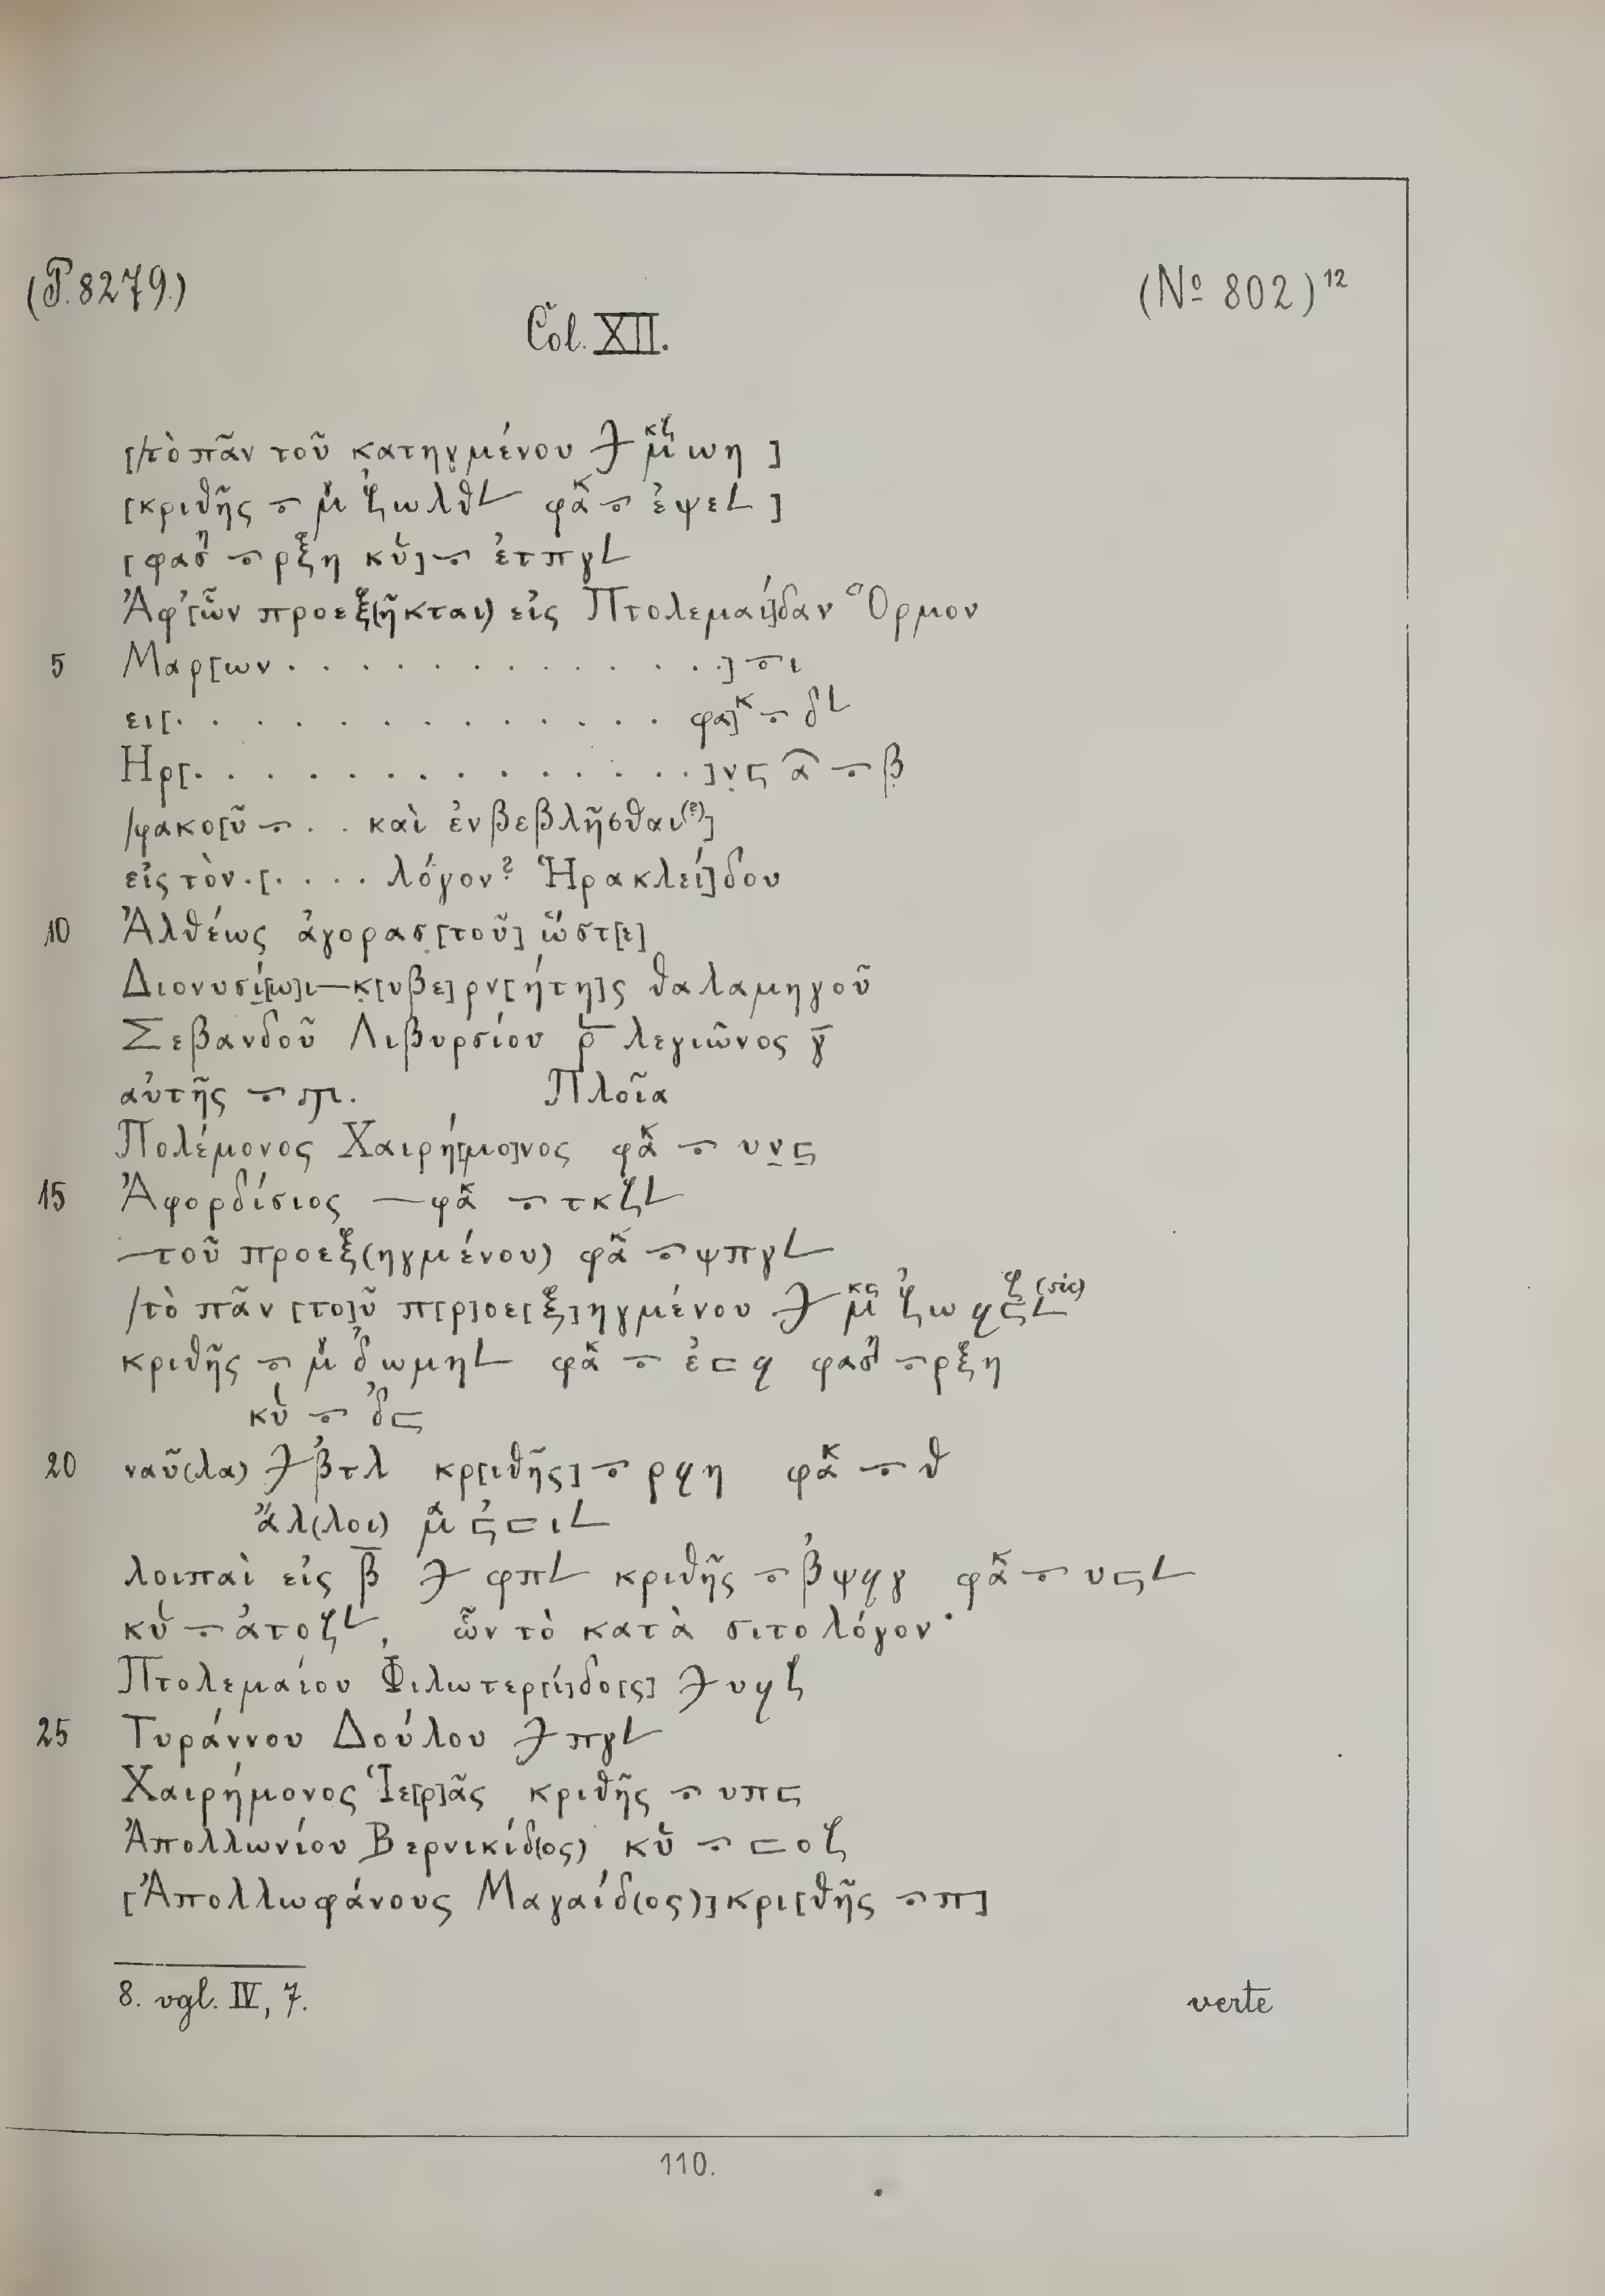 (P. 8279.)
(No 802)¹²
Col. XII.
[/τὸ πᾶν τοῦ κατηγμένου μ̈ κζ ωη ]
[κριθῆς 𐆎 μ̈ ζωλθ𐅵 φακ 𐆎 ἐψε𐅵 ]
[φασ η 𐆎 ρξη κῡ] 𐆎 ἐτπγ𐅵
Ἀφ' [ὧν προεξ(ῆκται) εἰς Πτολεμαί]δαν Ὅρμον
5 Μαρ[ων . . . . . . . . . . . . .] 𐆎 ι
ει[. . . . . . . . . . . . . . φα]κ 𐆎 δ𐅵
Ηρ[. . . . . . . . . . . . . . .]νϛ α 𐆎 β
/φακο[ῦ 𐆎 . . καὶ ἐνβεβλῆσθαι(?)]
εἰς τὸν . [. . . . λόγον? Ἡρακλεί]δου
10 Ἀλθέως ἀγορασ[τοῦ] ὥστ[ε]
Διονυσί[ω]ι — κ[υβε]ρν[ήτη]ς θαλαμηγοῦ
Σεβανδοῦ Λιβυρσίου ρ̄ λεγιῶνος γ̄
αὐτῆς 𐆎 ϡ. Πλοῖα
Πολέμονος Χαιρή[μο]νος φακ 𐆎 υνϛ
15 Ἀφορδίσιος — φακ 𐆎 τκζ𐅵
— τοῦ προεξ(ηγμένου) φακ 𐆎 ψπγ𐅵
/τὸ πᾶν [το]ῦ π[ρ]οε[ξ]ηγμένου μ̈ κϛ ζωϟϛ ζ 𐅵 (sic)
κριθῆς 𐆎 μ̈ δωμη𐅵 φακ 𐆎 ἐσϟ φασ η 𐆎 ρξη
κῡ 𐆎 δϛ
20 ναῦ(λα) βτλ κρ[ιθῆς] 𐆎 ρϟη φακ 𐆎 θ
ἄλ(λοι) μ α ϛσι𐅵
λοιπαὶ εἰς β̄ φπ𐅵 κριθῆς 𐆎 βψϟγ φακ 𐆎 υϛ𐅵
κῡ 𐆎 ἀτοζ𐅵, ὧν τὸ κατὰ σιτολόγον·
Πτολεμαίου Φιλωτερ[ί]δο[ς] υϟζ
25 Τυράννου Δούλου πγ𐅵
Χαιρήμονος Ἱε[ρ]ᾶς κριθῆς 𐆎 υπϛ
Ἀπολλωνίου Βερνικίδ(ος) κῡ 𐆎 σοζ
[Ἀπολλωφάνους Μαγαίδ(ος)] κρι[θῆς 𐆎 π]
8. vgl. IV, 7.
verte
110.